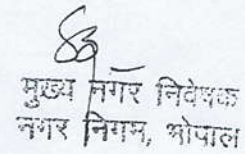 मुख्य नगर निवेषक
नगर निगम, भोपाल